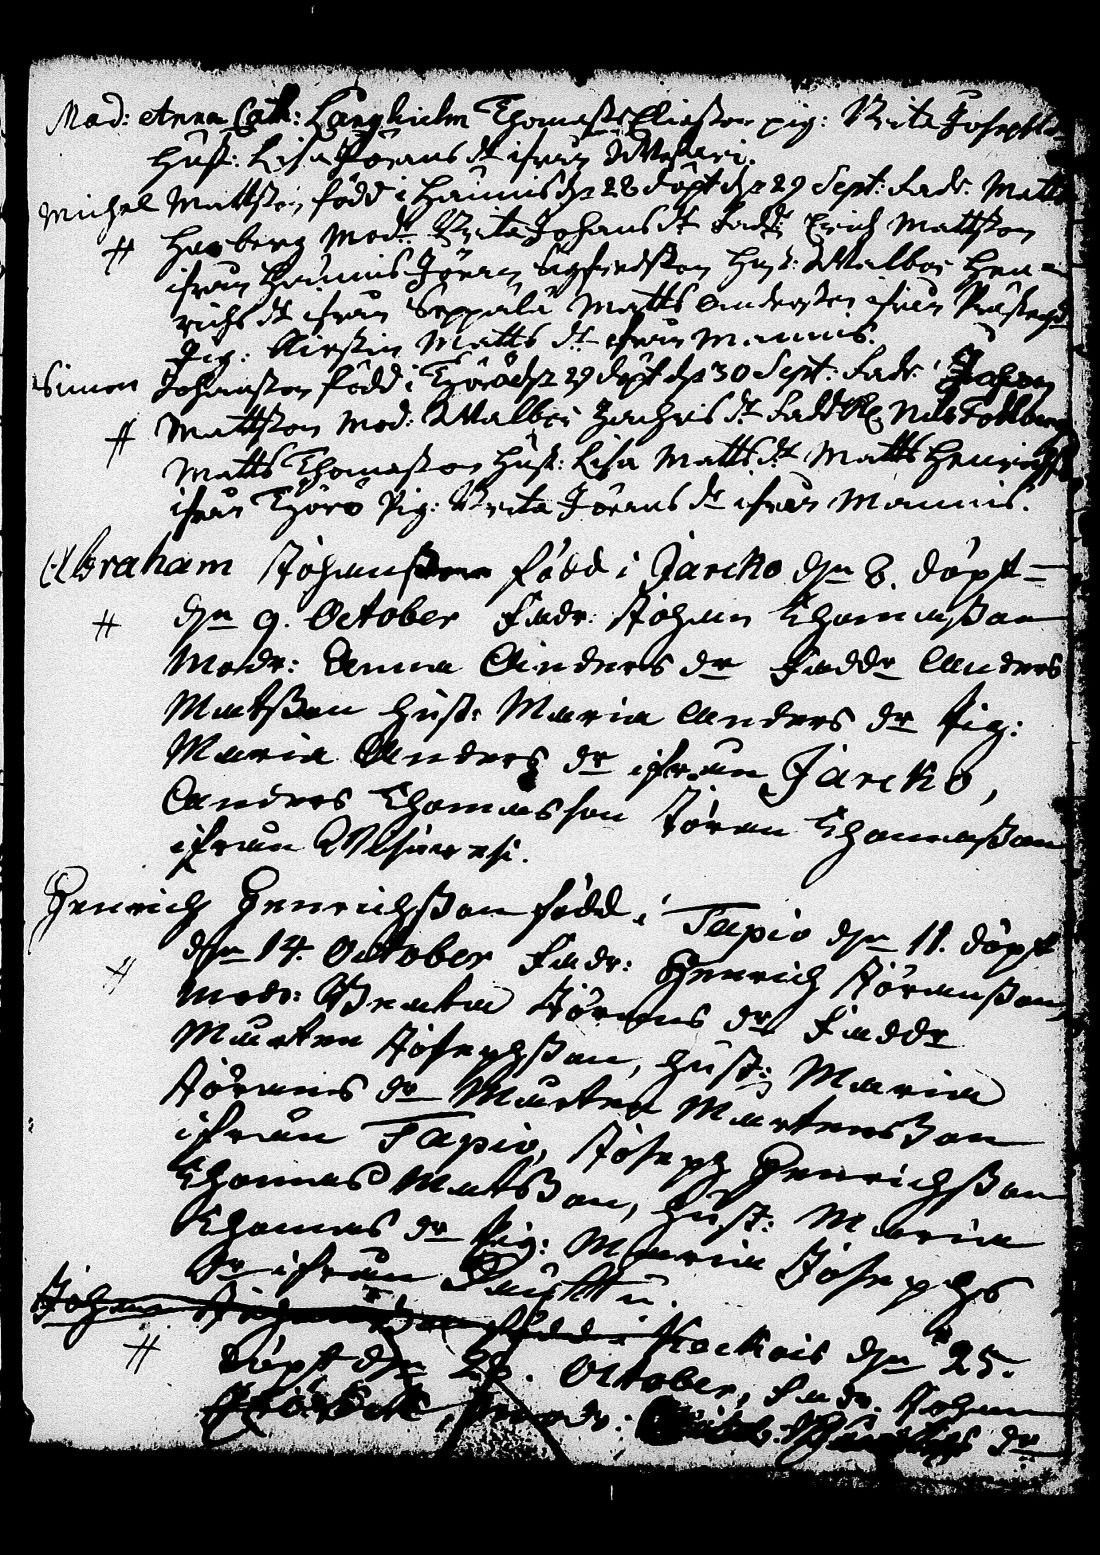 Mad: Anna Cath: Langhielm Thomas Eliesson pig: Brita Josephs
Hust: Lisa Jörans dr ifrån
Michel Mattsson, född i Hannis dn 28 döpt dn 29 Sept: Fadr. Matts
# Harberg Modr Brita Johans dr Faddr Erich Mattsson
ifrån Hannis Jöran Sigfredsson Hust: Walbor Hen=
richs dr ifrån Seppälä Matts Andersson ifrån
Pig: Kirstin Matts dr ifrån Mannis.
Simon Johansson född i Tjörö dn 29 döpt dn 30 Sept: Fadr: Johan
# Mattsson Mod: Walbor Zachris dr Faddr Nils
Matts Thomasson Hust: Lisa Matts dr Matts Henrichss
ifrån Tjörö Pig: Brita Jörans dr ifrån Mannis.
Abraham Johansson född i Jarcko dn 8. döpt=
# dn 9. October Fadr: Johan Thomasson
Modr: Anna Anders dr Faddr Anders
Matsson Hust: Maria Anders dr Pig:
Maria Anders dr ifrån Jarcko,
Anders Thomasson Jöran Thomasson
ifrån
Henrich Henrichsson född i Tapio dn 11. döpt
# dn 14. October Fadr: Henrich Jöransson
Modr: Beata Jörans dr Faddr
Mårten Josephsson, Hust: Maria
Jörans dr Mårten Mårtensson
ifrån Tapio, Joseph Henrichsson
Thomas Matsson, Hust: Maria
Thomas dr Pig: Maria Josephs
dr ifrån
Johan född i Kockois dn 25.
# döpt dn 28. October, Fadr. Johan
Modr: dr